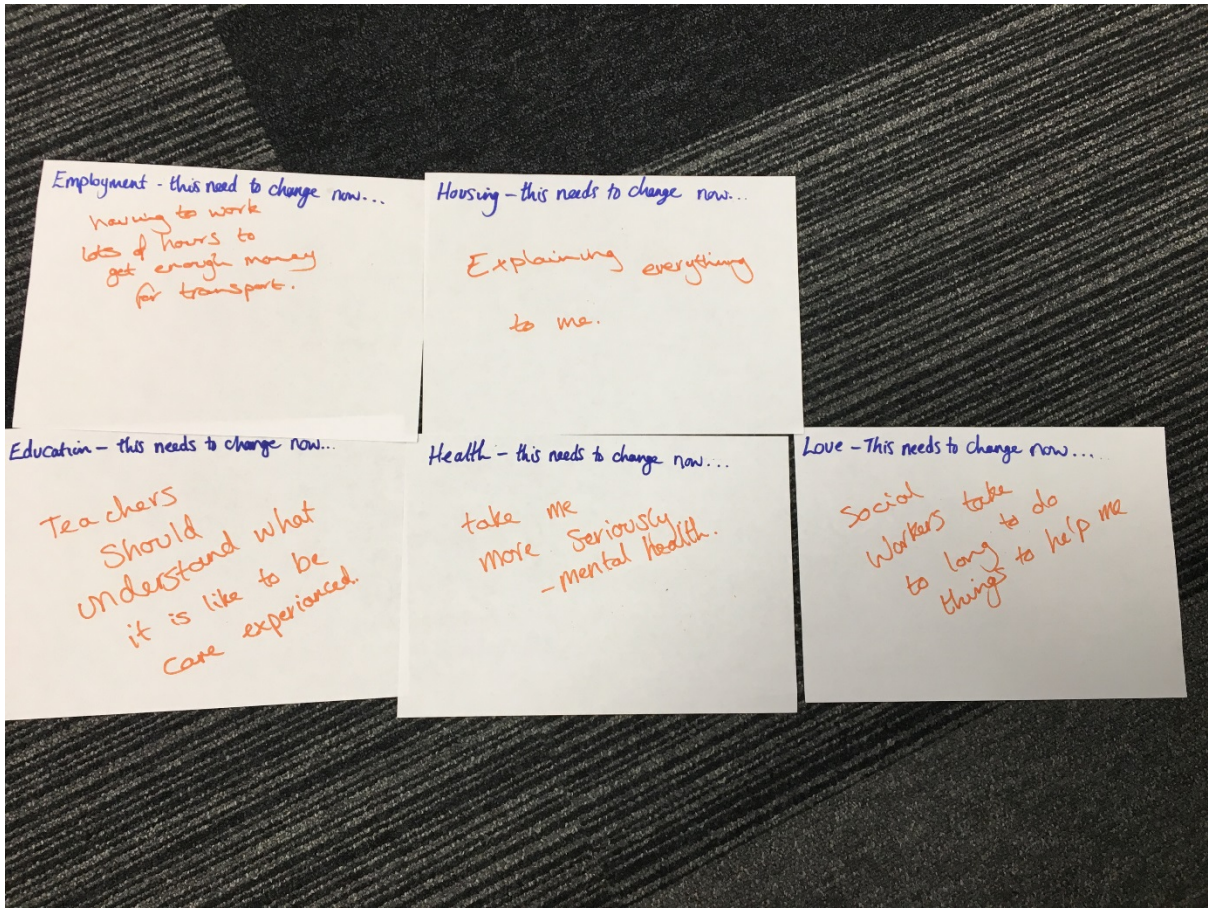 Employment - this need to change now...
having to work
lots of hours to
get enough money
for transport.
Housing - this needs to change now...
Explaining everything
to me.
Education - this needs to change now...
Teachers
Should
understand what
it is like to be
care experianced.
Health - this needs to change now...
take me
more seriously
- mental health.
Love - This needs to change now...
Social
Workers take
to long to do
things to help me